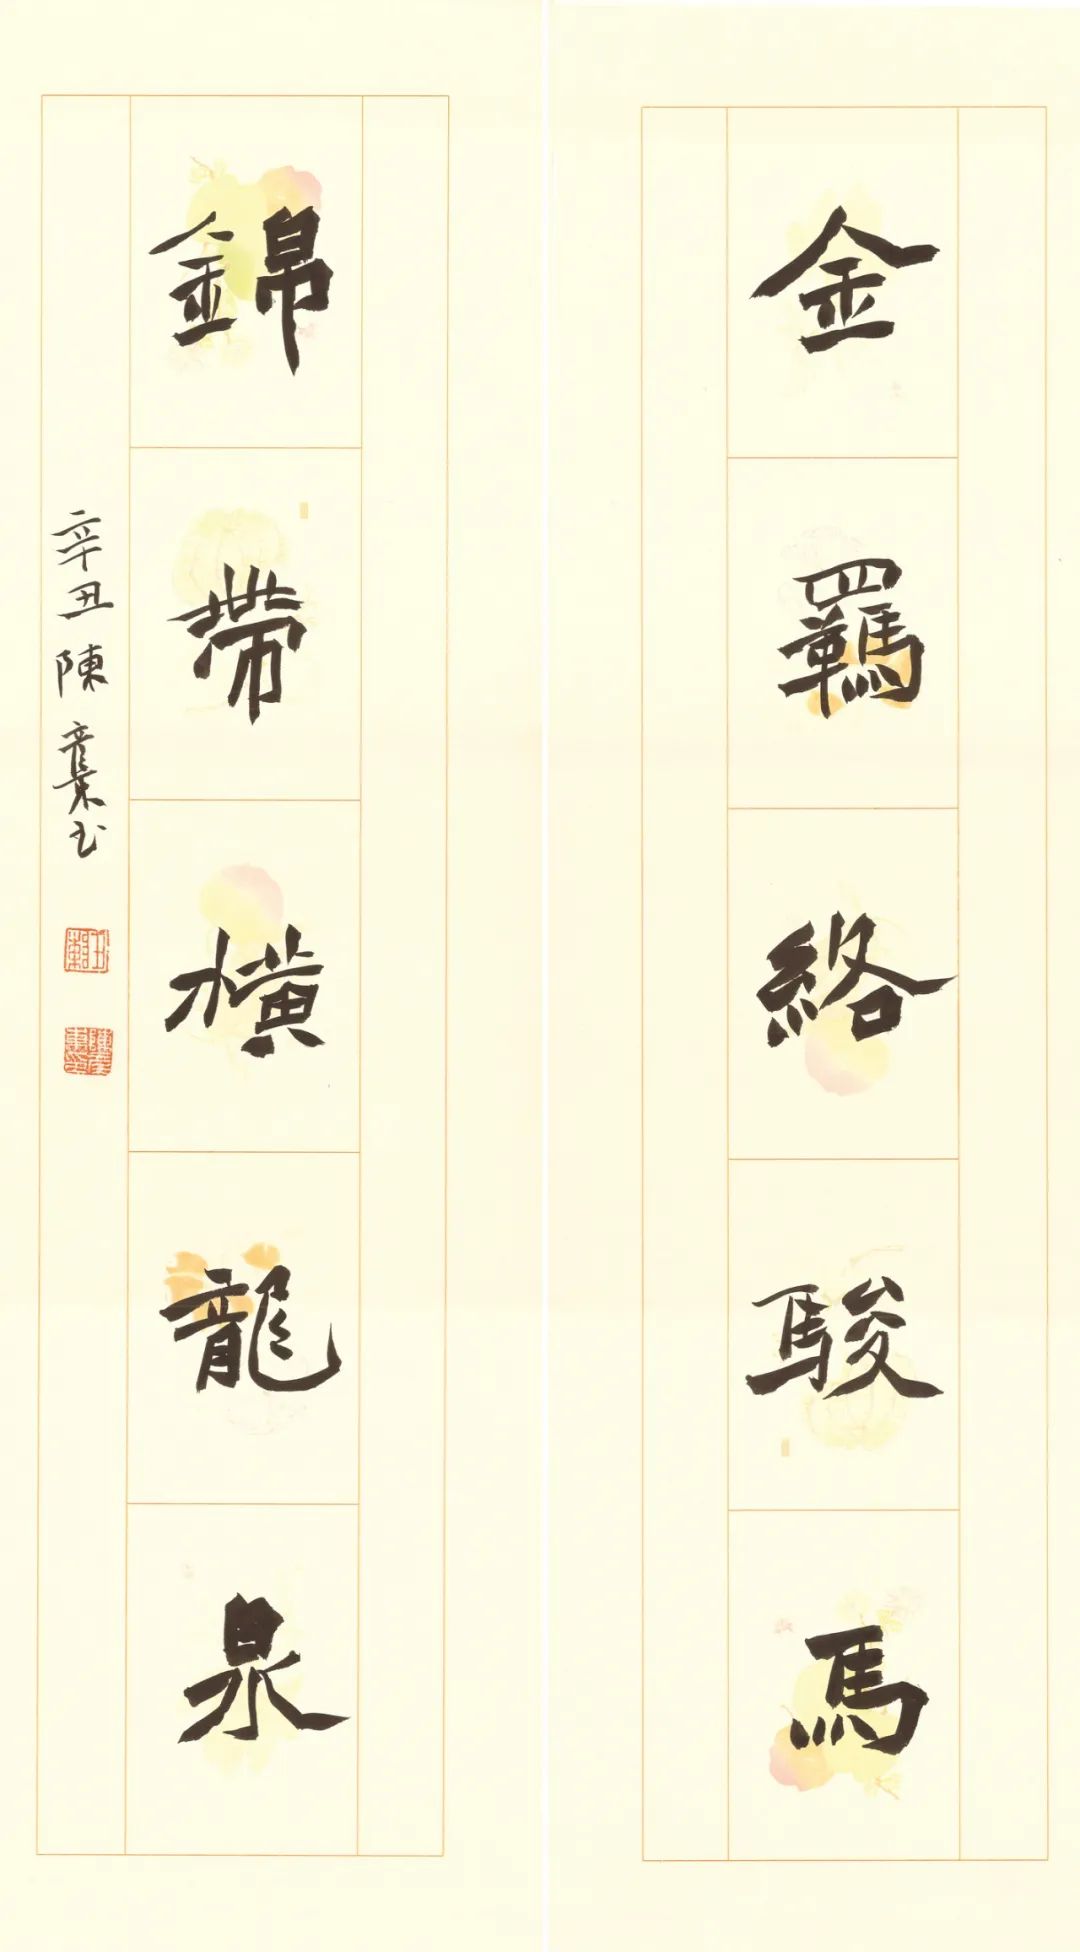 金羈絡駿馬
錦帶橫龍泉
辛丑 陳